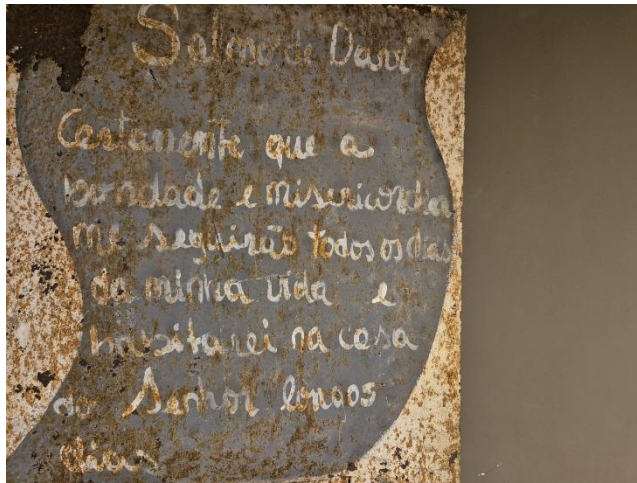 Salmo de Davi
Certamente que a
bondade e misericordia
me seguirão todos os dias
da minha vida e
habitarei na casa
do Senhor longos
dias